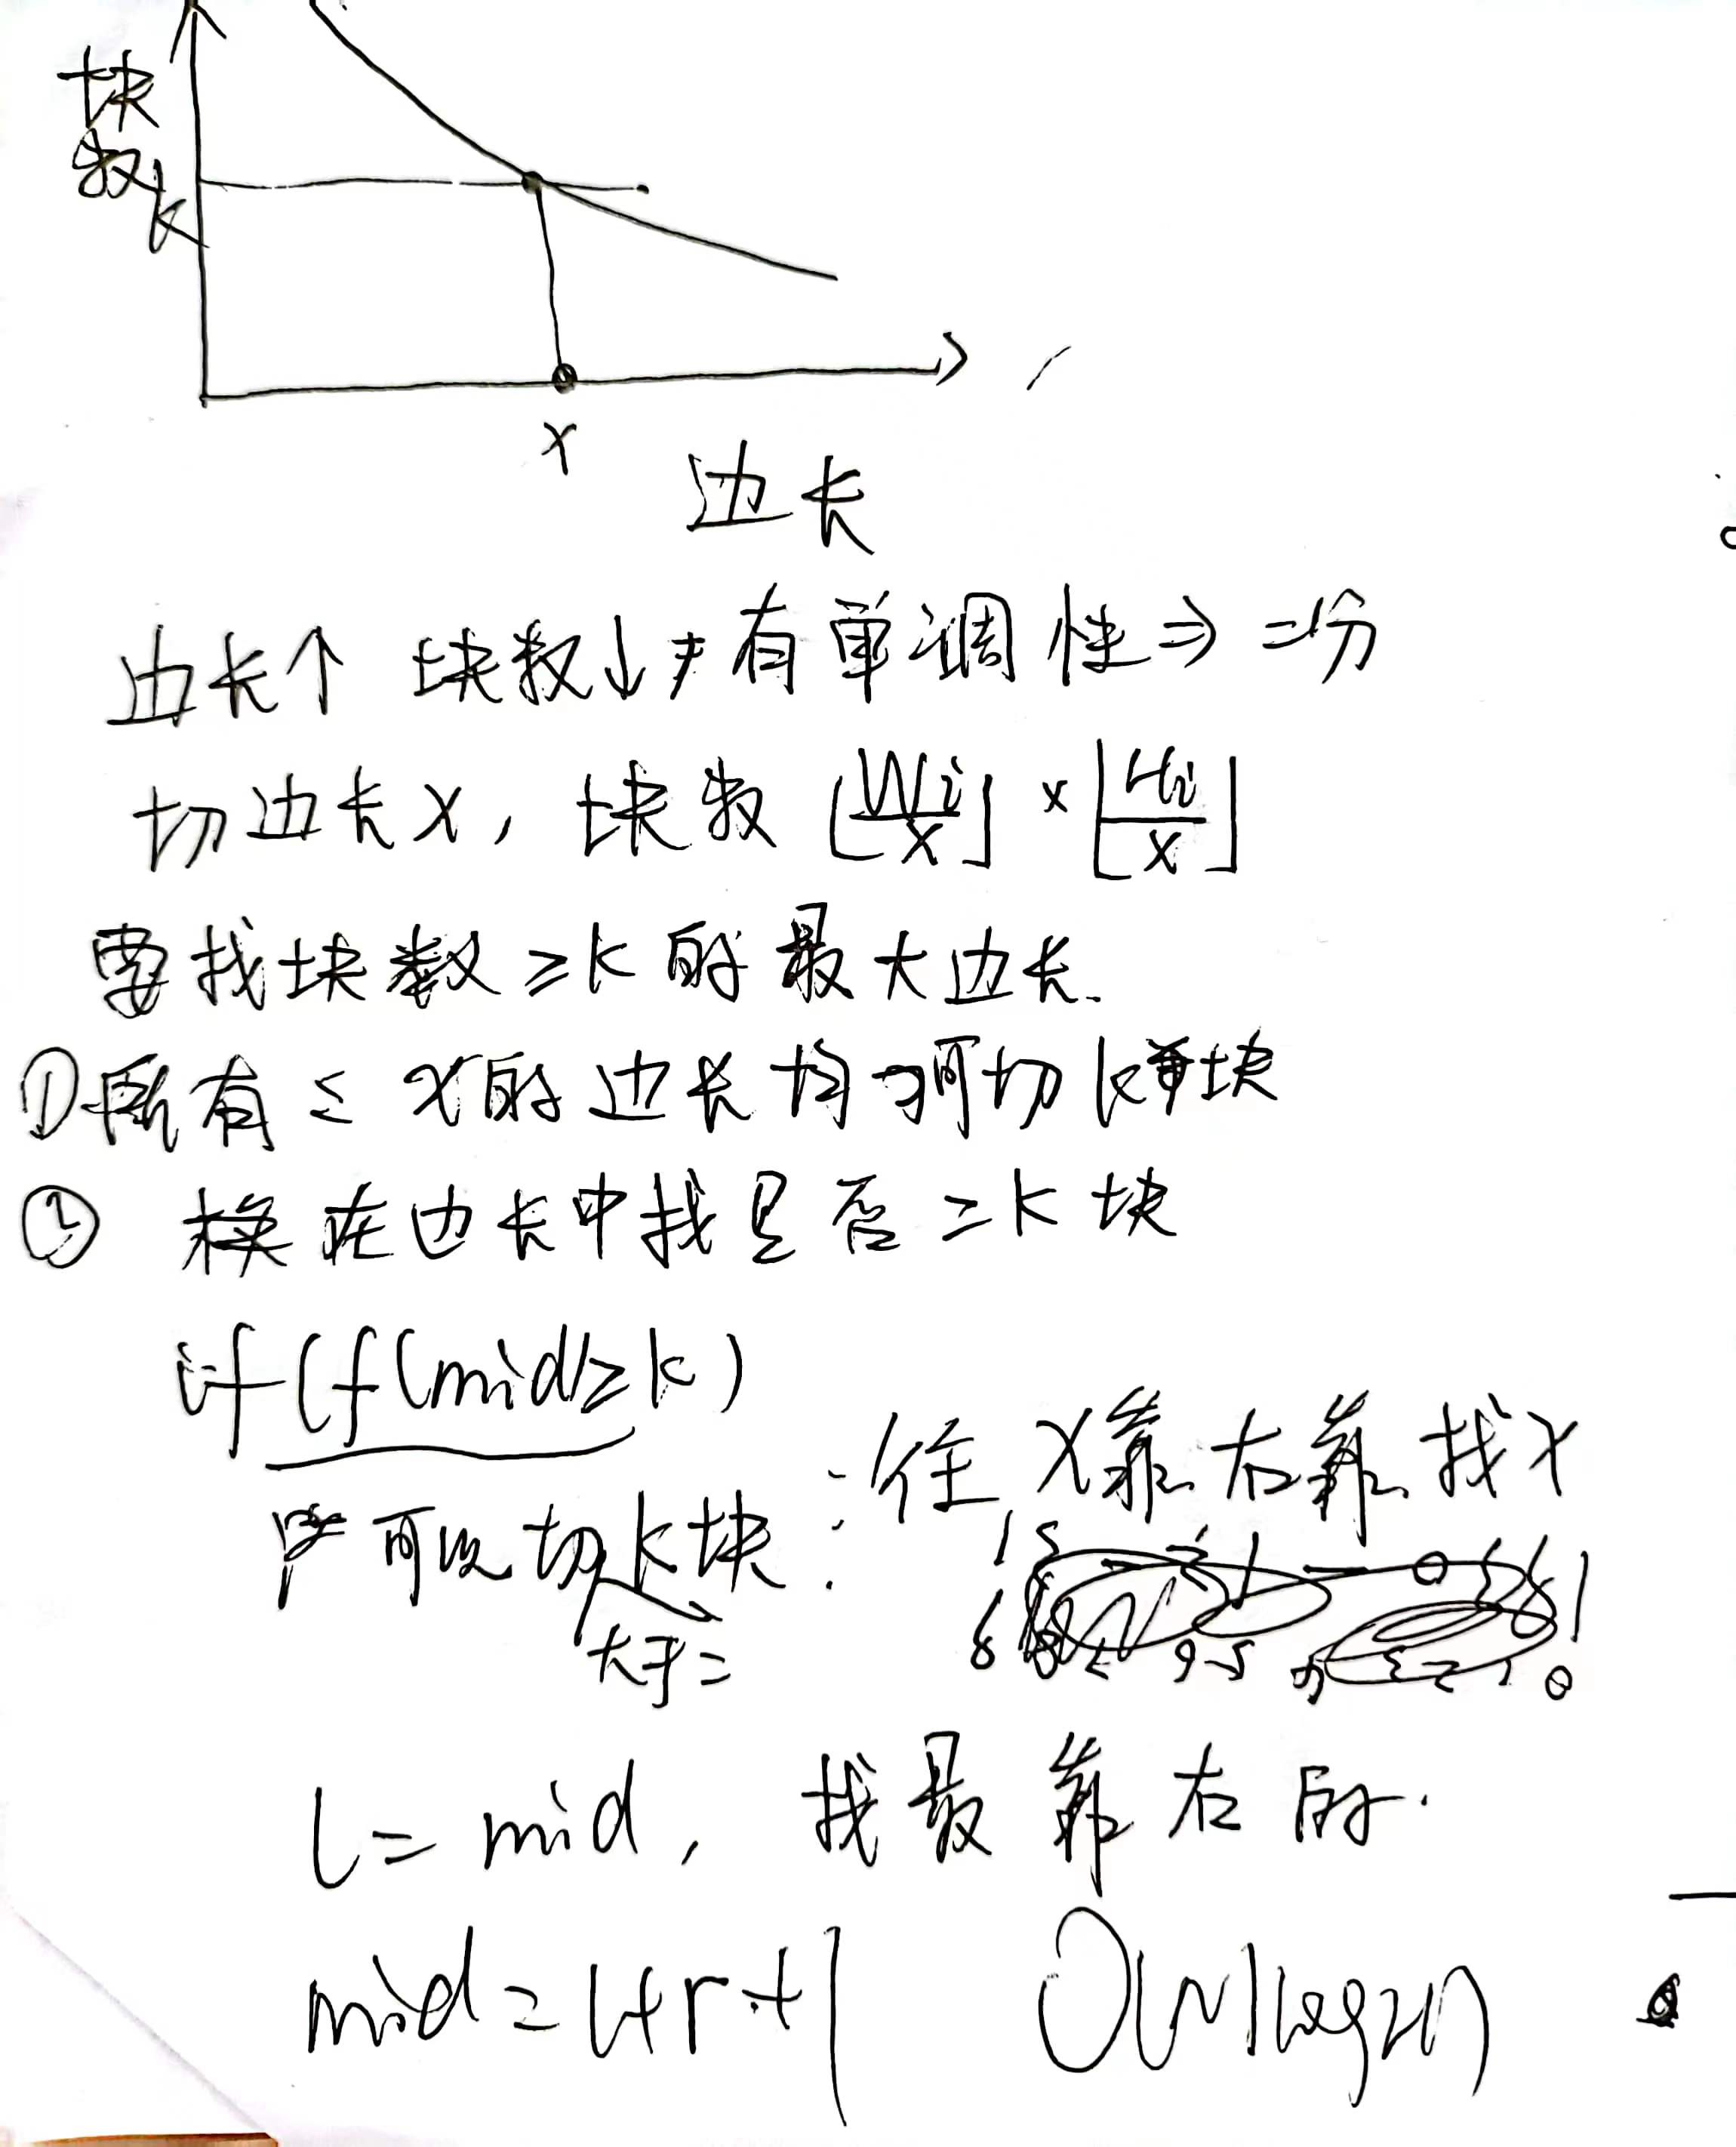 块
数
k
x
边长
边长↑ 块数↓,有单调性⇒二分
切边长x, 块数 ⌊Wi/x⌋×⌊Hi/x⌋
要找块数≥k的最大边长.
①所有≤x的边长均可切k块
② 在边长中找是否≥k块
if(f(mid≥k)
可以切k块
大于=
往x靠右靠找x
l=mid, 找最靠右的.
mid=l+r+1